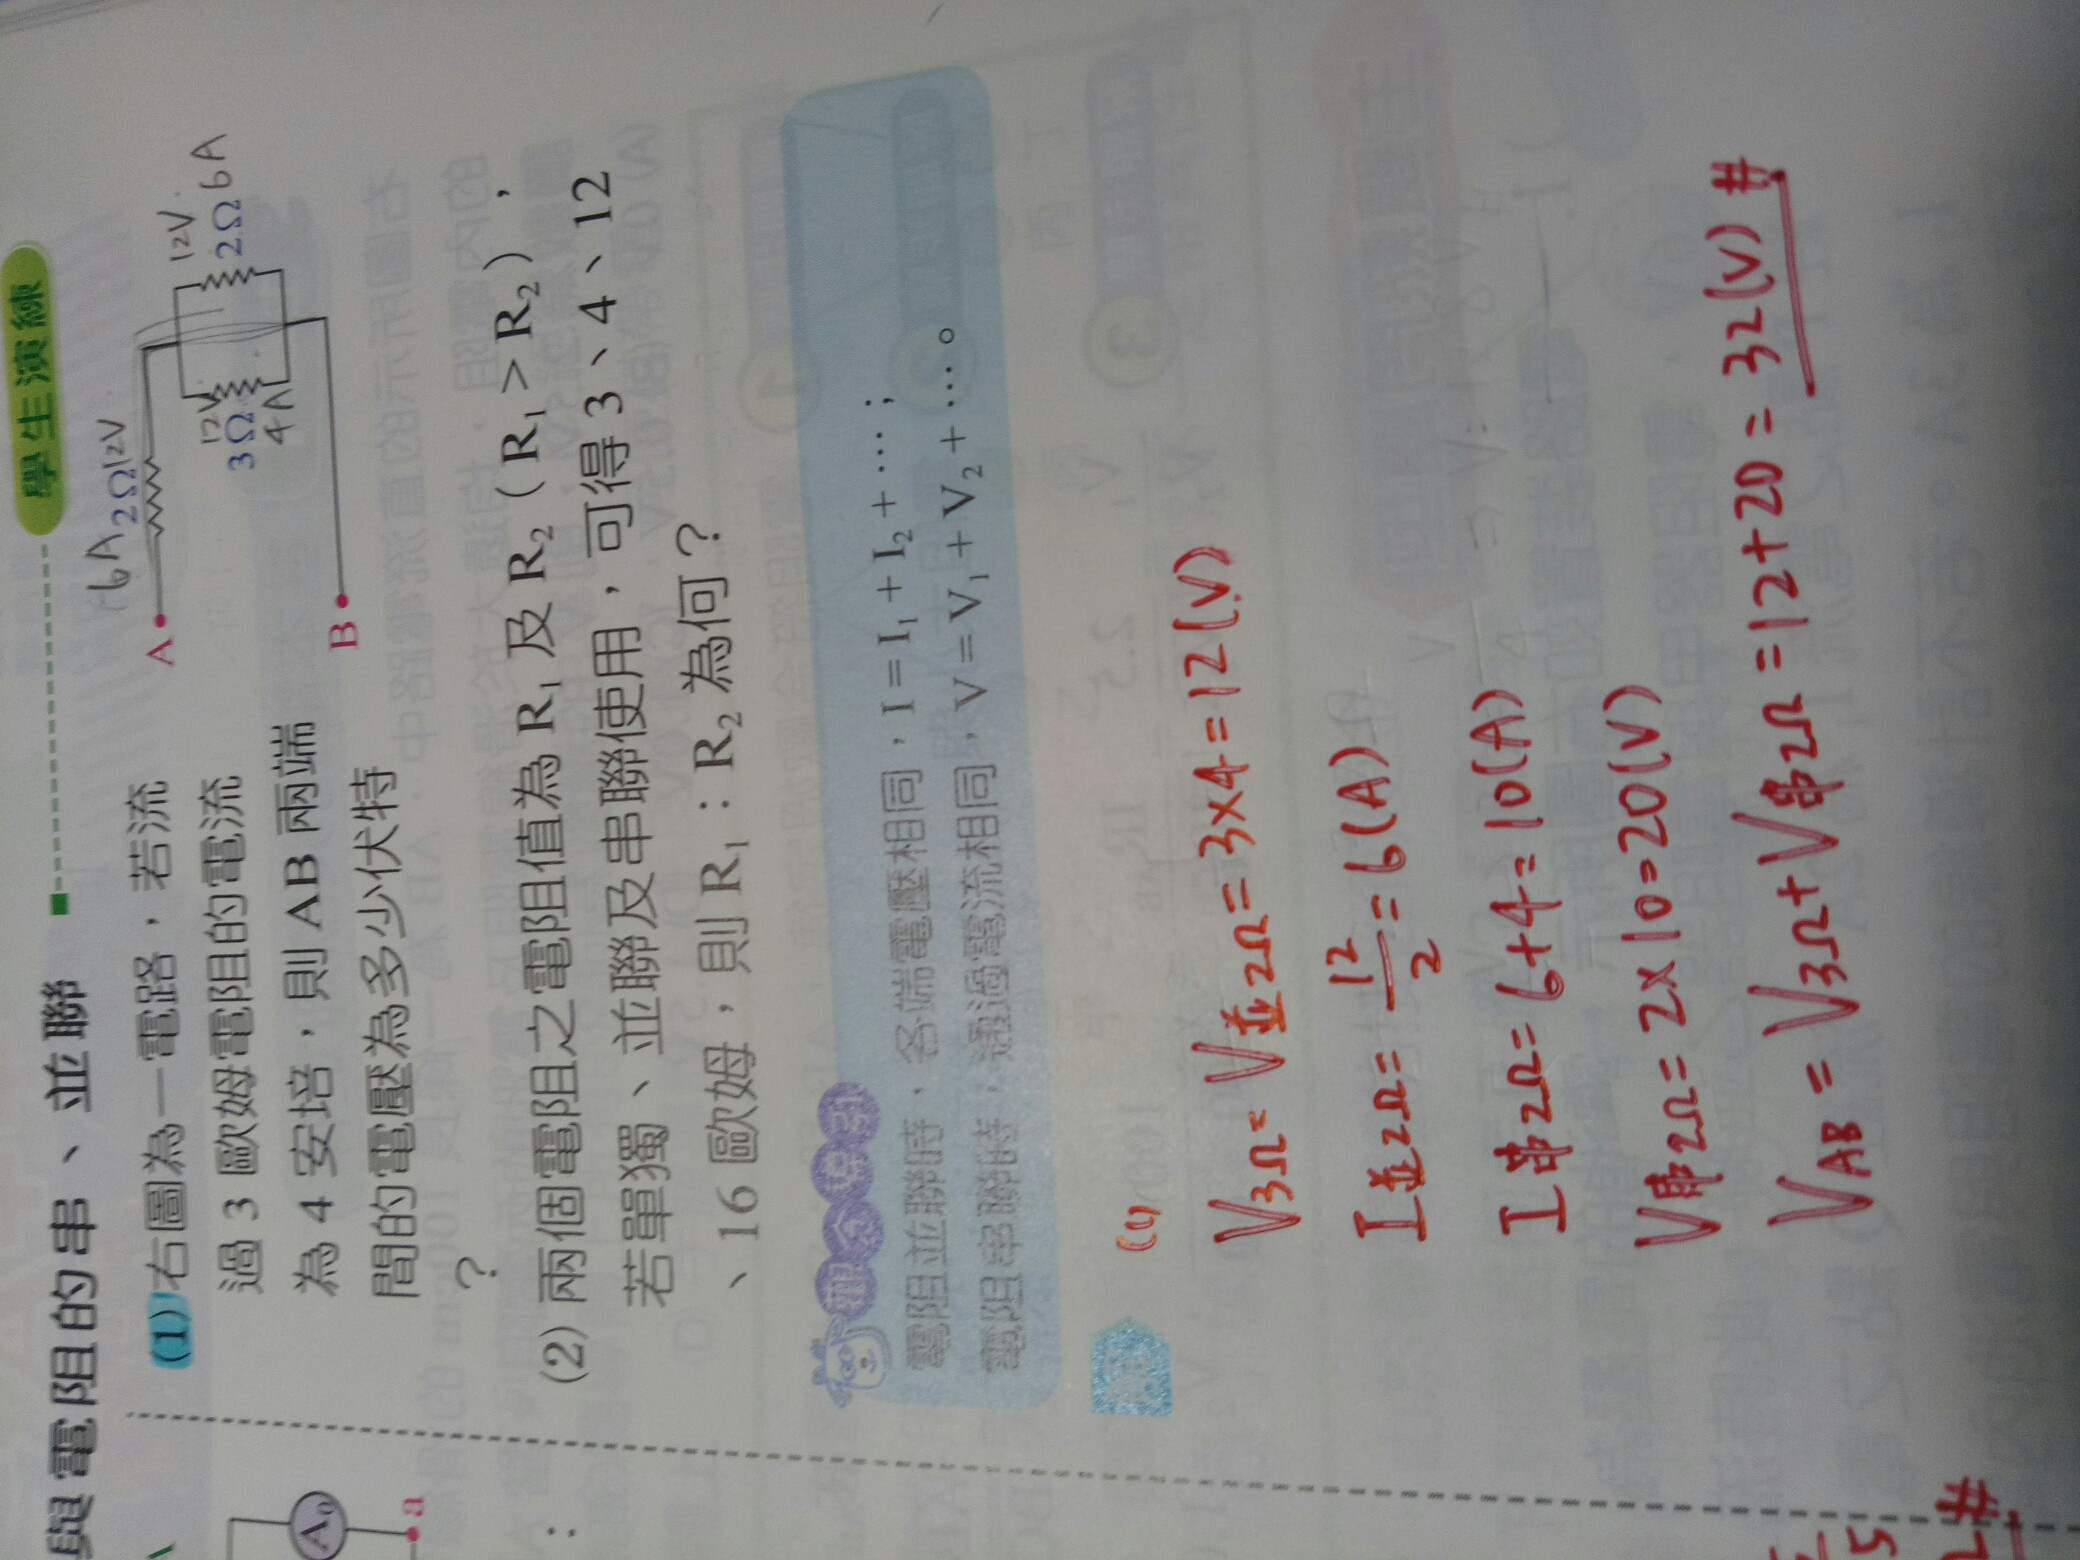 與電阻的串、並聯
學生演練
(1) 右圖為一電路，若流
過 3 歐姆電阻的電流
為 4 安培，則 AB 兩端
間的電壓為多少伏特
？
6A
2Ω 12V
A
12V
3Ω
4A
12V
2Ω 6A
B
(2) 兩個電阻之電阻值為 R₁ 及 R₂（R₁＞R₂），
若單獨、並聯及串聯使用，可得 3、4、12
、16 歐姆，則 R₁：R₂ 為何？
電阻並聯時，各端電壓相同，I = I₁ + I₂ + …；
電阻串聯時，通過電流相同，V = V₁ + V₂ + …。
(1)
V3Ω = V並2Ω = 3×4 = 12(V)
I並2Ω = 12/2 = 6(A)
I串2Ω = 6+4 = 10(A)
V串2Ω = 2×10 = 20(V)
VAB = V3Ω + V串2Ω = 12+20 = 32(V) #
A₀
a
：
5
#